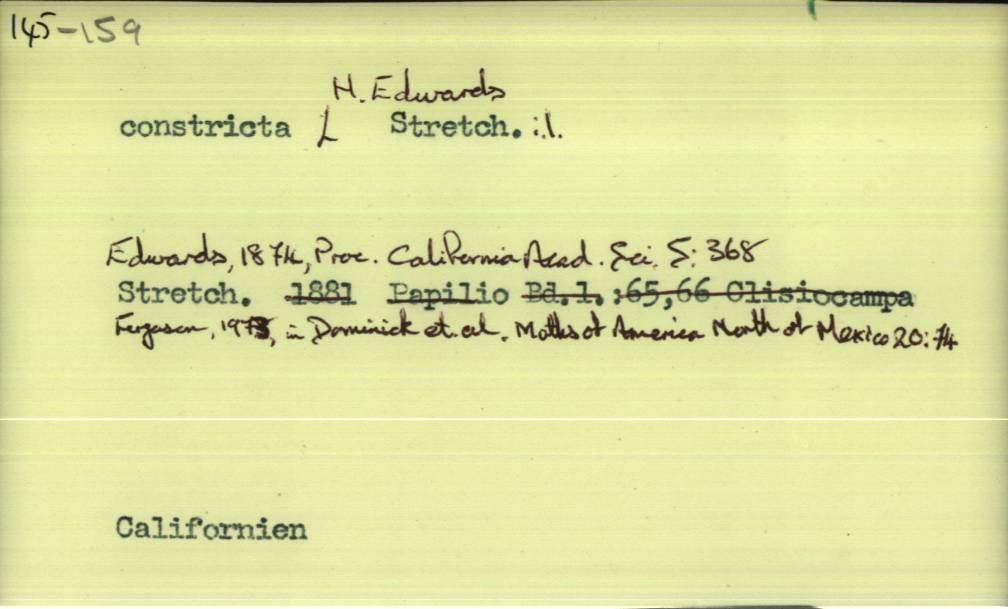 145-159
H. Edwards
constricta L Stretch. :l.
Edwards, 1874, Proc. California Acad. Sci. 5: 368
Stretch. 1881 Papilio Bd.l. :65,66 Clisiocampa
Ferguson, 1973, in Dominick et. al. Moths of America North of Mexico 20: 74
Californien